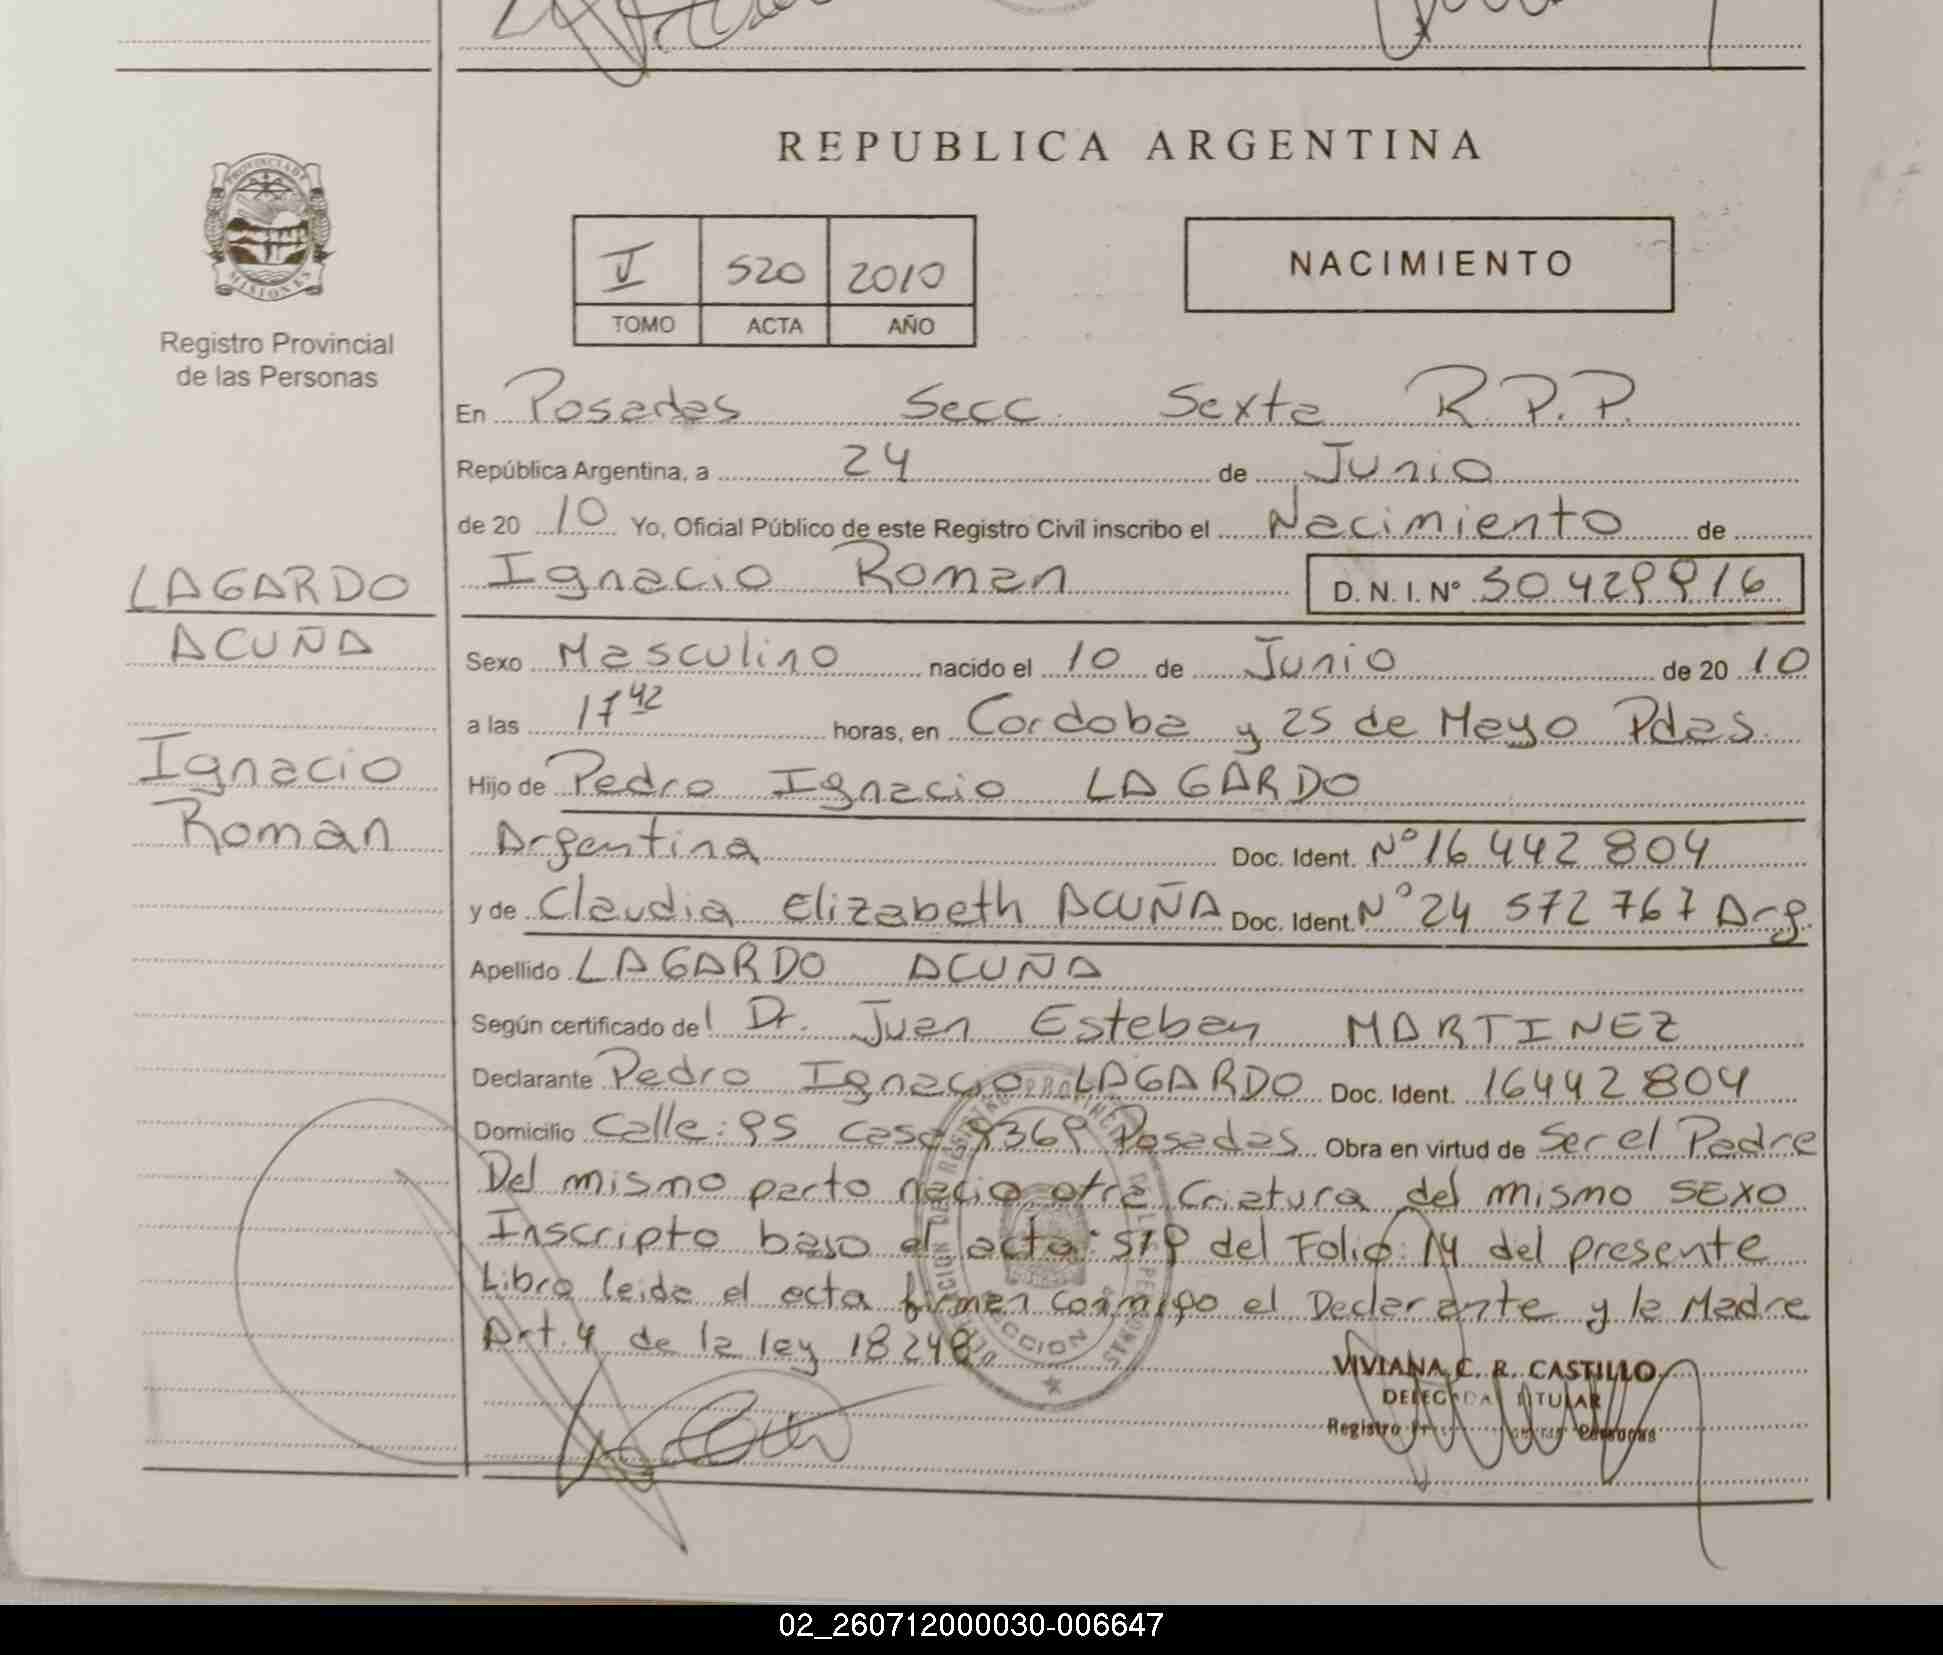 PROVINCIA DE
MISIONES
Registro Provincial
de las Personas
LAGARDO
ACUÑA
Ignacio
Roman
REPUBLICA ARGENTINA
520 2010
TOMO ACTA AÑO
NACIMIENTO
En Posadas Secc. Sexta R.P.P.
República Argentina, a 24 de Junio
de 20 10 Yo, Oficial Público de este Registro Civil inscribo el Nacimiento de
Ignacio Roman D.N.I. Nº
Sexo Masculino nacido el 10 de Junio de 20 10
a las 17 42 horas, en Cordoba y 25 de Mayo Pdas.
Hijo de Pedro Ignacio LAGARDO
Argentina Doc. Ident. Nº 16 442 804
y de Claudia Elizabeth ACUÑA Doc. Ident. Nº 24 572 767 Arg.
Apellido LAGARDO ACUÑA
Según certificado del Dr. Juan Esteban MARTINEZ
Declarante Pedro Ignacio LAGARDO Doc. Ident. 16442804
Domicilio Calle: 95 casa Posadas Obra en virtud de Ser el Padre
Del mismo parto nacio otra Criatura del mismo SEXO
Inscripto bajo el acta: 519 del Folio: 14 del presente
Libro leida el acta firman conmigo el Declarante y la Madre
Art. 4 de la ley 18248
VIVIANA C. R. CASTILLO
DELEGADA TITULAR
Registro Personas
02_260712000030-006647